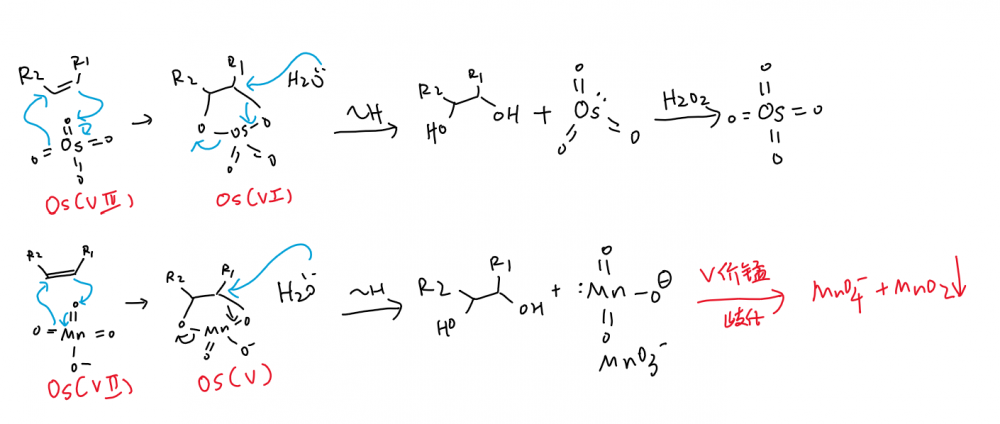 R2 R1
O
O=Os=O
O
Os(VIII)
R2 R1
O-Os=O
O O
Os(VI)
H2O
~H
R2 R1
HO OH
+
O
Os
O O
H2O2
O
O=Os=O
O
R2 R1
O
O=Mn=O
O-
Os(VII)
R2 R1
O-Mn=O
O O-
Os(V)
H2O
~H
R2 R1
HO OH
+
O
:Mn-O⊖
O
MnO3-
V价锰
歧化
MnO4- + MnO2↓